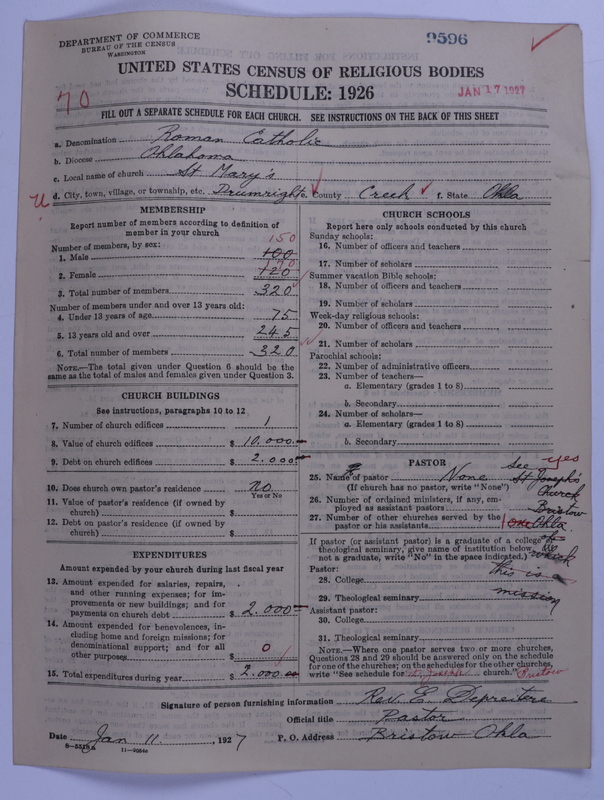 DEPARTMENT OF COMMERCE
BUREAU OF THE CENSUS
WASHINGTON
9596
UNITED STATES CENSUS OF RELIGIOUS BODIES
SCHEDULE: 1926
JAN 17 1927
70
FILL OUT A SEPARATE SCHEDULE FOR EACH CHURCH. SEE INSTRUCTIONS ON THE BACK OF THIS SHEET
a. Denomination Roman Catholic
b. Diocese Oklahoma
c. Local name of church St Mary's
d. City, town, village, or township, etc. Drumright e. County Creek f. State Okla
MEMBERSHIP
Report number of members according to definition of
member in your church
Number of members, by sex: 150
1. Male 100
170
2. Female 120
3. Total number of members 320
Number of members under and over 13 years old:
4. Under 13 years of age 75
5. 13 years old and over 245
6. Total number of members 320
NOTE.—The total given under Question 6 should be the
same as the total of males and females given under Question 3.
CHURCH BUILDINGS
See instructions, paragraphs 10 to 12
7. Number of church edifices 1
8. Value of church edifices $ 10.000
9. Debt on church edifices $ 2.000
10. Does church own pastor's residence No
Yes or No
11. Value of pastor's residence (if owned by
church) $
12. Debt on pastor's residence (if owned by
church) $
EXPENDITURES
Amount expended by your church during last fiscal year
13. Amount expended for salaries, repairs,
and other running expenses; for im-
provements or new buildings; and for
payments on church debt $ 2.000
14. Amount expended for benevolences, in-
cluding home and foreign missions; for
denominational support; and for all
other purposes $ 0
15. Total expenditures during year $ 2.000.00
CHURCH SCHOOLS
Report here only schools conducted by this church
Sunday schools:
16. Number of officers and teachers
17. Number of scholars
Summer vacation Bible schools:
18. Number of officers and teachers
19. Number of scholars
Week-day religious schools:
20. Number of officers and teachers
21. Number of scholars
Parochial schools:
22. Number of administrative officers
23. Number of teachers—
a. Elementary (grades 1 to 8)
b. Secondary
24. Number of scholars—
a. Elementary (grades 1 to 8)
b. Secondary
PASTOR
See yes
25. Name of pastor None St Joseph's
(If church has no pastor, write "None") Church
26. Number of ordained ministers, if any, em-
ployed as assistant pastors Bristow
27. Number of other churches served by the
pastor or his assistants 1 one Okla
If pastor (or assistant pastor) is a graduate of a college or
theological seminary, give name of institution below. (If
not a graduate, write "No" in the space indicated.)
Pastor:
28. College this is a
29. Theological seminary mission
Assistant pastor:
30. College
31. Theological seminary
NOTE.—Where one pastor serves two or more churches,
Questions 28 and 29 should be answered only on the schedule
for one of the churches; on the schedules for the other churches,
write "See schedule for St. Joseph church." Bristow
Signature of person furnishing information Rev. E. Depreitere
Official title Pastor
Date Jan 11, 1927 P. O. Address Bristow Okla